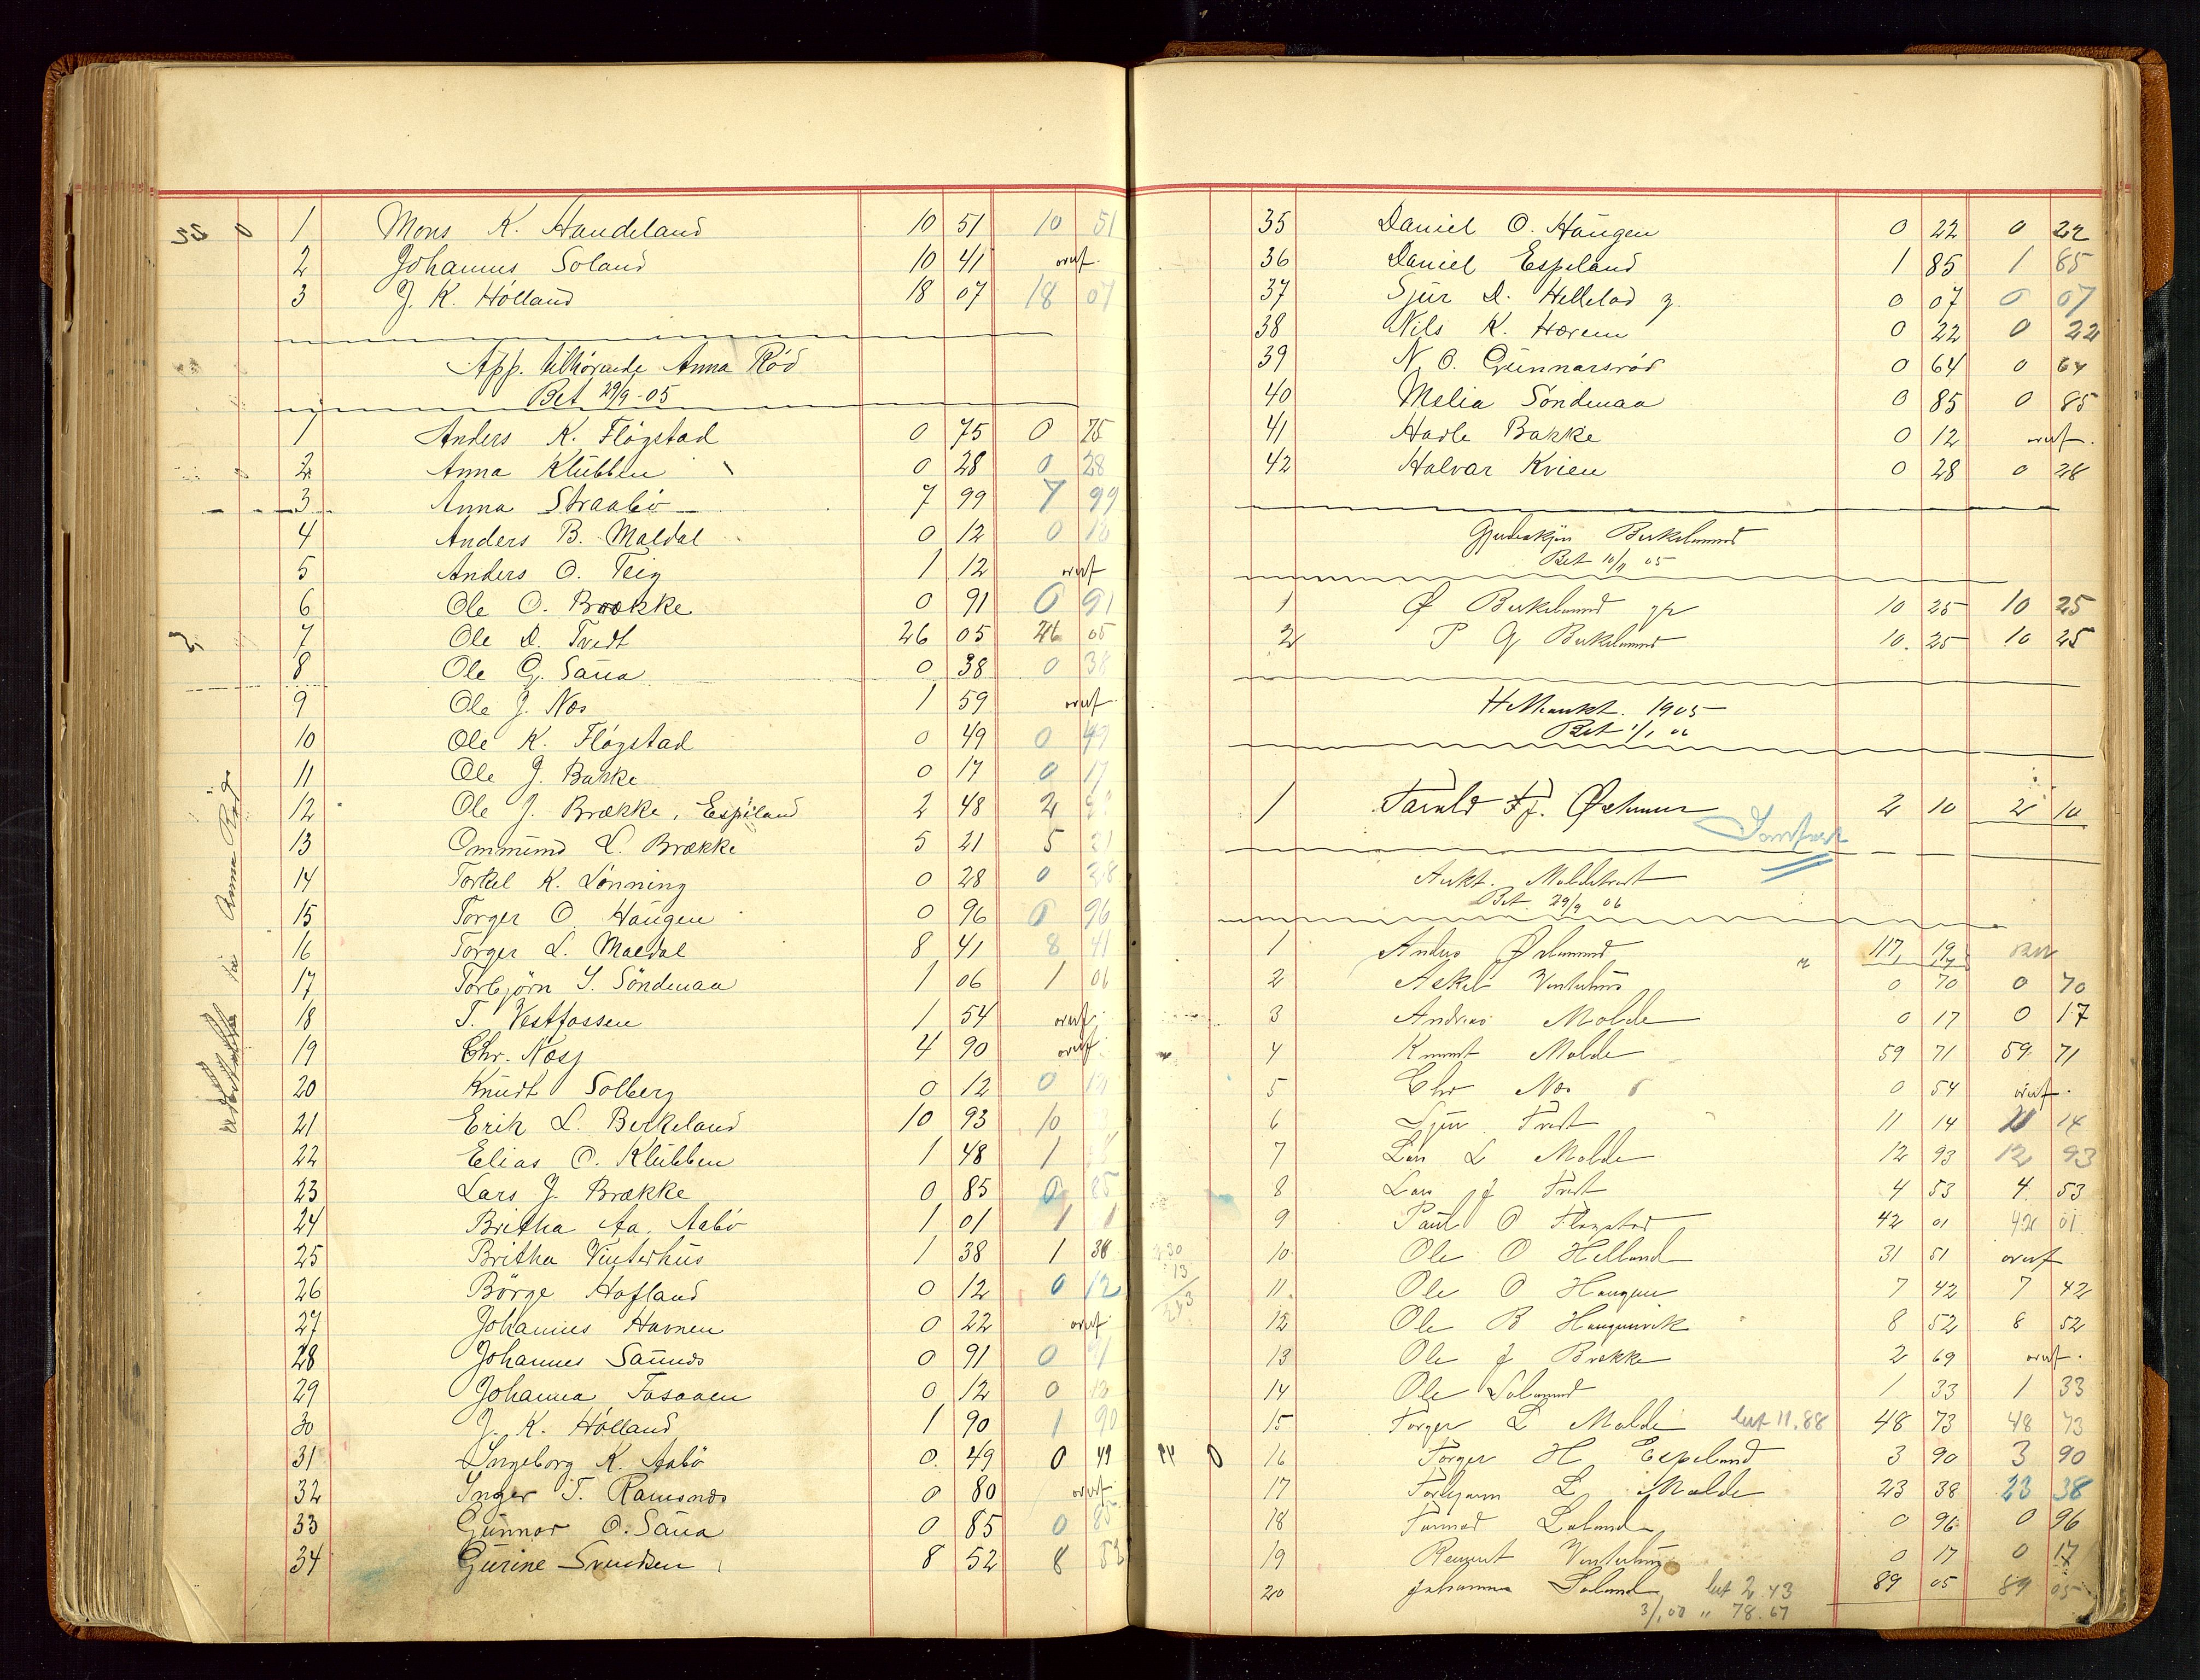 1 Mons K. Handeland 10 51 10 51
2 Johannes Soland 10 41 overf.
3 J. K. Hölland 18 07 18 07
App. tilhørende Anna Rød
Bet 29/9-05
1 Anders K. Fløgstad 0 75 0 75
2 Anna Klubben 0 28 0 28
3 Anna Straabö 7 99 7 99
4 Anders B. Maldal 0 12 0 12
5 Anders O. Teig 1 12 overf
6 Ole O. Brække 0 91 0 91
7 Ole D. Tvedt 26 05 26 05
8 Ole G. Saua 0 38 0 38
9 Ole J. Nos 1 59 overf.
10 Ole K. Fløgstad 0 49 0 49
11 Ole J. Bakke 0 17 0 17
12 Ole J. Brække, Espeland 2 48 2
13 Ommund L. Brække 5 21 5 21
14 Torkel K. Lönning 0 28 0 28
15 Torger O. Haugen 0 96 0 96
16 Torger L. Maldal 8 41 8 41
17 Torbjörn S. Söndenaa 1 06 1 06
18 T. Vestfossen 1 54 overf.
19 Chr. Nosj 4 90 overf.
20 Knudt Solberg 0 12 0 12
21 Erik L. Berkeland 10 93 10
22 Elias O. Klubben 1 48 1
23 Lars J. Brække 0 85 0 85
24 Britha Aa. Aabö 1 01 1
25 Britha Vinterhus 1 38 1 38
26 Börge Hofland 0 12 0 12
27 Johannes Havnen 0 22 overf.
28 Johannes Saunds 0 91 0 91
29 Johanna Fosaaen 0 12 0 12
30 J. K. Hölland 1 90 1 90
31 Ingeborg K. Aabö 0. 49 0 49
32 Inger T. Ramsnds 0 80 overf.
33 Gunnar O. Saua 0 85 0 85
34 Gurine Svendsen 8 52 8 52
Anna Rød
35 Daniel O. Haugen 0 22 0 22
36 Daniel Espeland 1 85 1 85
37 Sjur D. 0 07 0 07
38 Nils K. Horem 0 22 0 22
39 N. O. Gunnarsrød 0 64 0 64
40 Malia Söndenaa 0 85 0 85
41 Hadle Bakke 0 12 overf.
42 Halvar Kvien 0 28 0 28
Bet 10/11 05
1 10 25 10 25
2 P G 10. 25 10 25
1905
Bet 1/1 06
1 2 10 2 10
Aukt.
Bet. 29/9 06
1 Anders 117 19
2 Askel Vinterhus 0 70 0 70
3 Andreas Molde 0 17 0 17
4 Knudt Molde 59 71 59 71
5 Chr Nos 0 54 overf.
6 Sjur Tvedt 11 14 11 14
7 Lars L Molde 12 93 12 93
8 Lars J Tvedt 4 53 4 53
9 Paul O Fløgstad 42 01 42 01
10 Ole O Helland 31 51 overf
11. Ole O Haugen 7 42 7 42
12 Ole B Haugenvik 8 52 8 52
13 Ole J Brekke 2 69 overf.
14 Ole 1 33 1 33
15 Torger L Molde bet 11.88 48 73 48 73
16 Torger H Espeland 3 90 3 90
17 Torbjørn L Molde 23 38 23 38
18 0 96 0 96
19 Vinterhus 0 17 0 17
20 Johannes Soland bet 2.43 89 05 89 05
78.67